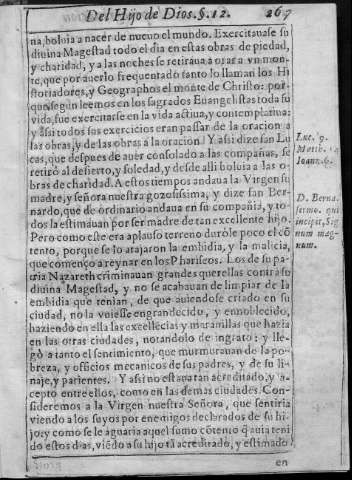 Del Hijo de Dios. §. 12. 267
na, boluia a nacer de nueuo el mundo. Exercitauase su
diuina Magestad todo el dia en estas obras de piedad,
y charidad, y a las noches se retiraua a orar a vn mon-
te, que por auerlo frequentado tanto lo llaman los Hi
storiadores, y Geographos el monte de Christo: por-
que segun leemos en los sagrados Euangelistas toda su
vida, fue exercitarse en la vida actiua, y contemplatiua:
y assi todos sus exercicios eran passar de la oracion a
las obras, y de las obras a la oracion. Y assi dize san Lu
cas, que despues de auer consolado a las compañas, se
retirò al desierto, y soledad, y desde alli boluia a las o-
bras de charidad. A estos tiempos andaua la Virgen su
madre, y señora nuestra gozosissima, y dize san Ber-
nardo, que de ordinario andaua en su compañia, y to-
dos la estimauan por ser madre de tan excellente hijo.
Pero como este era aplauso terreno duròle poco el cõ
tento, porque se lo atajaron la embidia, y la malicia,
que començo a reynar en los Phariseos. Los de su pa-
tria Nazareth criminauan grandes querellas contra su
diuina Magestad, y no se acabauan de limpiar de la
embidia que tenian, de que auiendose criado en su
ciudad, no la vuiesse engrandecido, y ennoblecido,
haziendo en ella las excellẽcias y marauillas que hazia
en las otras ciudades, notandolo de ingrato: y lle-
gò a tanto el sentimiento, que murmurauan de la po-
breza, y officios mecanicos de sus padres, y de su li-
naje, y parientes. Y assi no estaua tan acreditado, y a-
cepto entre ellos, como en las demas ciudades. Con-
sideremos a la Virgen nuestra Señora, que sentiria
viendo a los suyos por enemigos declarados de su hi-
jo: y como se le aguaria aquel sumo cõtento q̃ auia teni
do estos dias, viẽdo a su hijo tã acreditado, y estimado
en
Luc. 9.
Matth.
Ioann. 6.
D. Berna.
sermo. qui
incipit, Sig
num mag-
num.